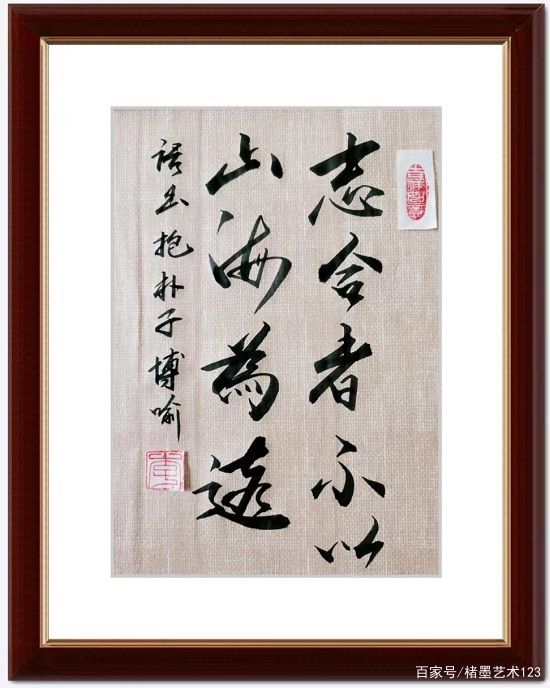 志合者不以
山海為遠
语出抱朴子博喻
百家号/楮墨艺术123